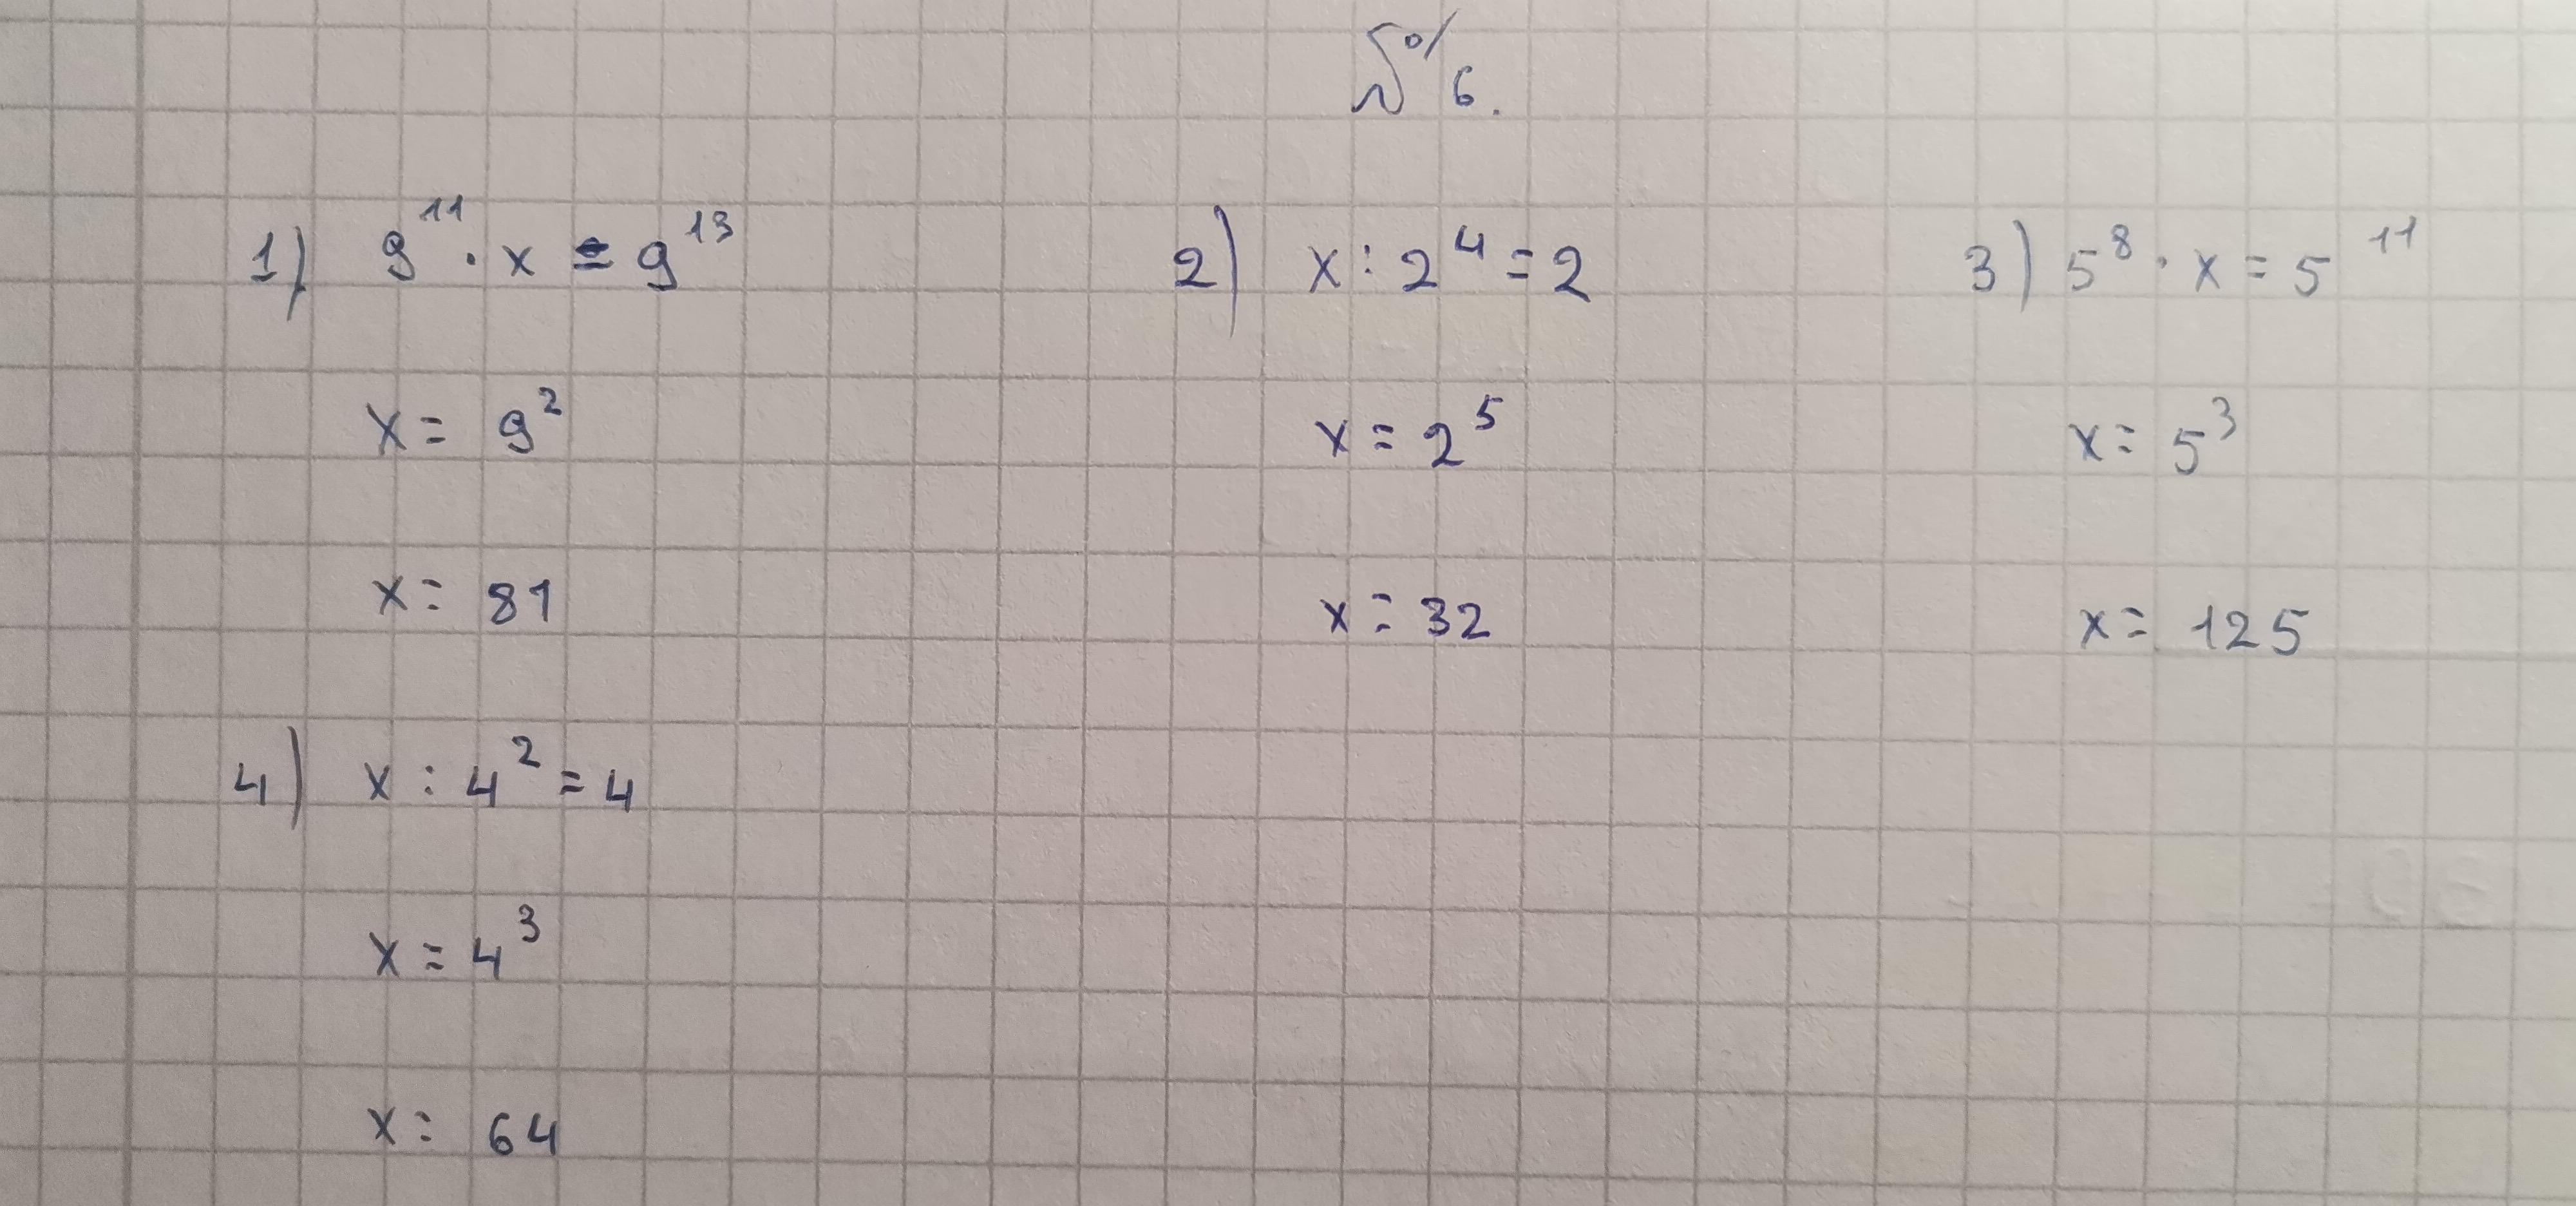 № 6.
1) 9¹¹ · x = 9¹³
x = 9²
x = 81
2) x : 2⁴ = 2
x = 2⁵
x = 32
3) 5⁸ · x = 5¹¹
x = 5³
x = 125
4) x : 4² = 4
x = 4³
x = 64